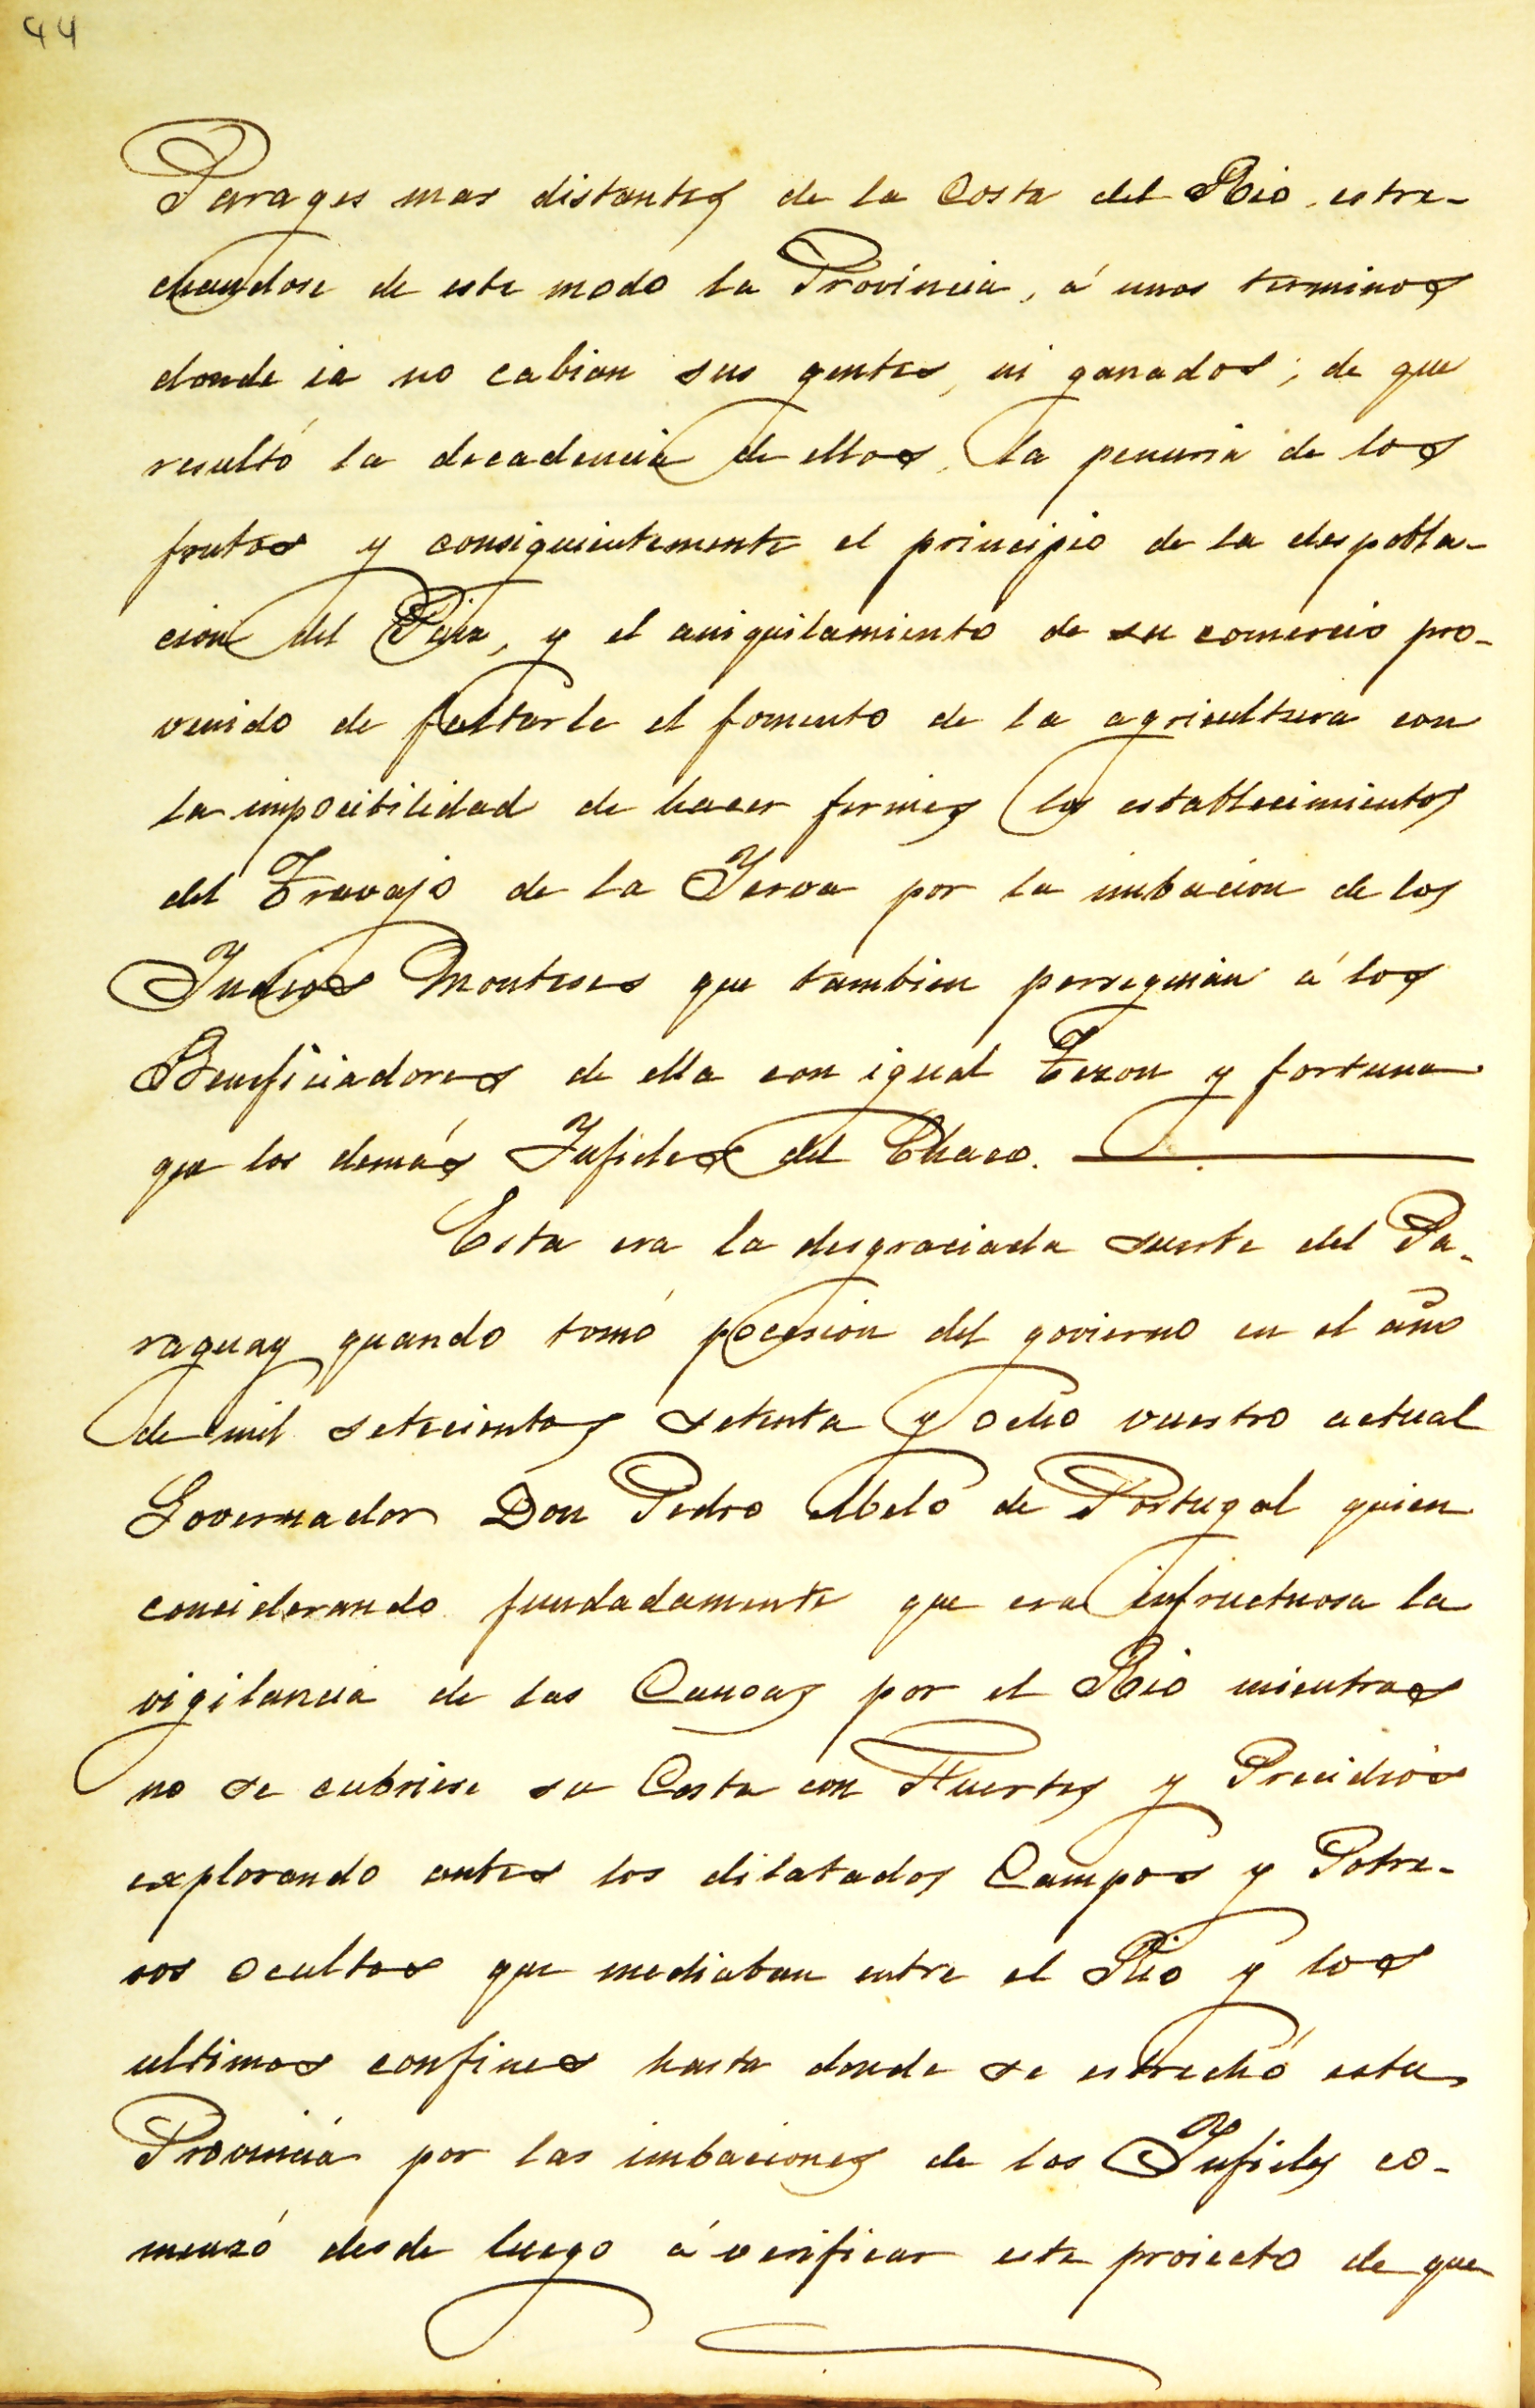 44
Parages mas distantes de la Costa del Rio, estre-
chandose de este modo la Provincia, á unos terminos
donde ia no cabian sus gentes, ni ganados; de que
resultó la decadencia de ellos, la penuria de los
frutos y consiguientemente el principio de la despobla-
cion del Pais, y el aniquilamiento de su comercio pro-
venido de faltarle el fomento de la agricultura con
la impocibilidad de hacer firmes los establecimientos
del Travajo de la Yerva por la imbacion de los
Indios Monteses que tambien perseguian á los
Beneficiadores de ella con igual Tezon y fortuna
que los demás Infieles del Chaco.
Esta era la desgraciada suerte del Pa-
raguay quando tomó pocesion del govierno en el año
de mil setecientos setenta y ocho vuestro actual
Governador Don Pedro Melo de Portugal quien
conciderando fundadamente que era infructuosa la
vigilancia de las Canoas por el Rio mientras
no se cubriese su Costa con Fuertes y Precidios
explorando antes los dilatados Campos y Potre-
ros ocultos que mediaban entre el Rio y los
ultimos confines hasta donde se estrechó esta
Provincia por las imbaciones de los Infieles co-
menzó desde luego á verificar este proiecto de que